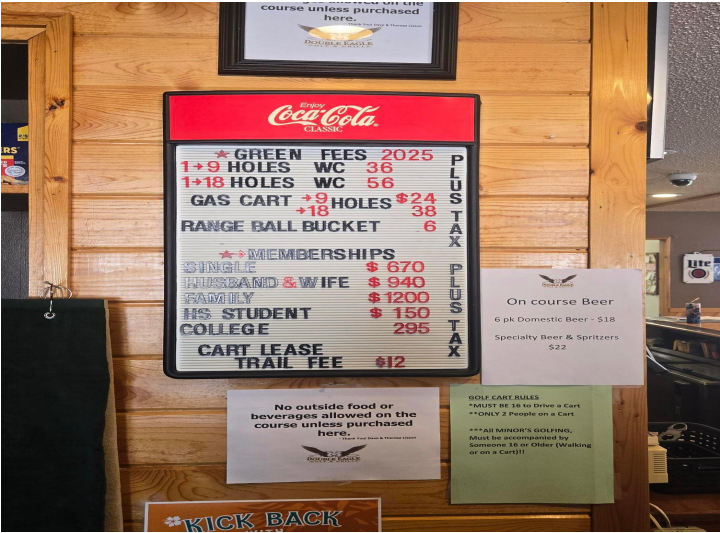 course unless purchased
here.
DOUBLE EAGLE
Enjoy
Coca-Cola
CLASSIC
GREEN FEES 2025
1→9 HOLES WC 36
1→18 HOLES WC 56
GAS CART →9 HOLES $24
→18 38
RANGE BALL BUCKET 6
PLUS TAX
MEMBERSHIPS
SINGLE $ 670
HUSBAND & WIFE $ 940
FAMILY $1200
HS STUDENT $ 150
COLLEGE 295
CART LEASE
TRAIL FEE $12
PLUS TAX
On course Beer
6 pk Domestic Beer - $18
Specialty Beer & Spritzers
$22
No outside food or
beverages allowed on the
course unless purchased
here.
DOUBLE EAGLE
GOLF CART RULES
*MUST BE 16 to Drive a Cart
**ONLY 2 People on a Cart
***All MINOR'S GOLFING,
Must be accompanied by
Someone 16 or Older (Walking
or on a Cart)!!
KICK BACK
WITH
Lite
ERS